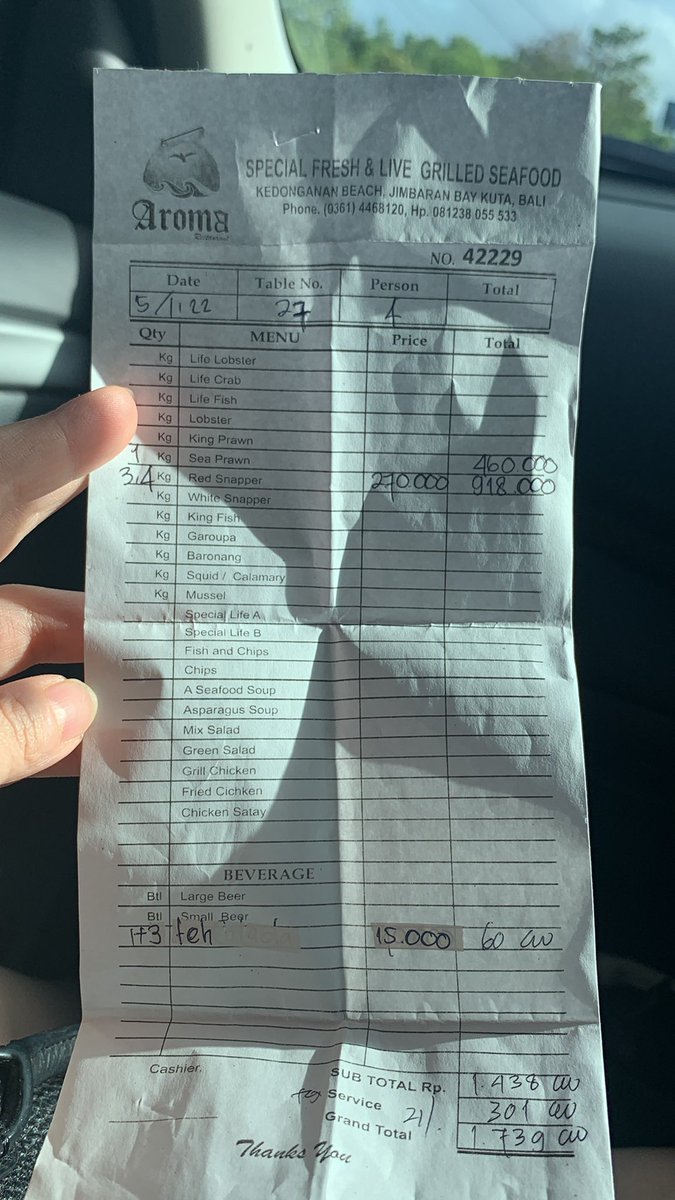 SPECIAL FRESH & LIVE GRILLED SEAFOOD
KEDONGANAN BEACH, JIMBARAN BAY KUTA, BALI
Phone. (0361) 4468120, Hp. 081238 055 533
Aroma
NO. 42229
Date Table No. Person Total
5/1/22 27 4
Qty MENU Price Total
Kg Life Lobster
Kg Life Crab
Kg Life Fish
Kg Lobster
Kg King Prawn
1 Kg Sea Prawn 460.000
3,4 Kg Red Snapper 270.000 918.000
Kg White Snapper
Kg King Fish
Kg Garoupa
Kg Baronang
Kg Squid / Calamary
Kg Mussel
Special Life A
Special Life B
Fish and Chips
Chips
A Seafood Soup
Asparagus Soup
Mix Salad
Green Salad
Grill Chicken
Fried Cichken
Chicken Satay
BEVERAGE
Btl Large Beer
Btl Small Beer
1+3 teh 15.000 60
Cashier,
SUB TOTAL Rp. 1.438
Service 21 301
Grand Total 1.739
Thanks You